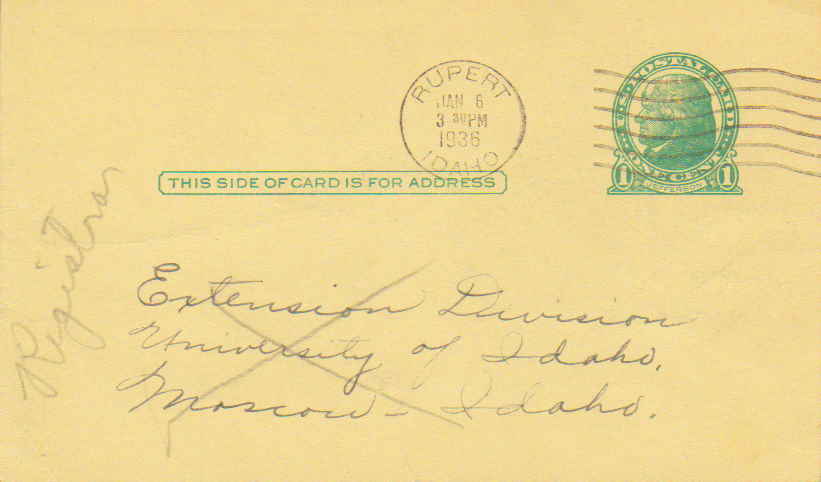 RUPERT
JAN 6
3 30 PM
1936
IDAHO
U.S. POSTAL CARD
ONE CENT
1 JEFFERSON 1
THIS SIDE OF CARD IS FOR ADDRESS
Registrar
Extension Division
University of Idaho.
Moscow - Idaho.